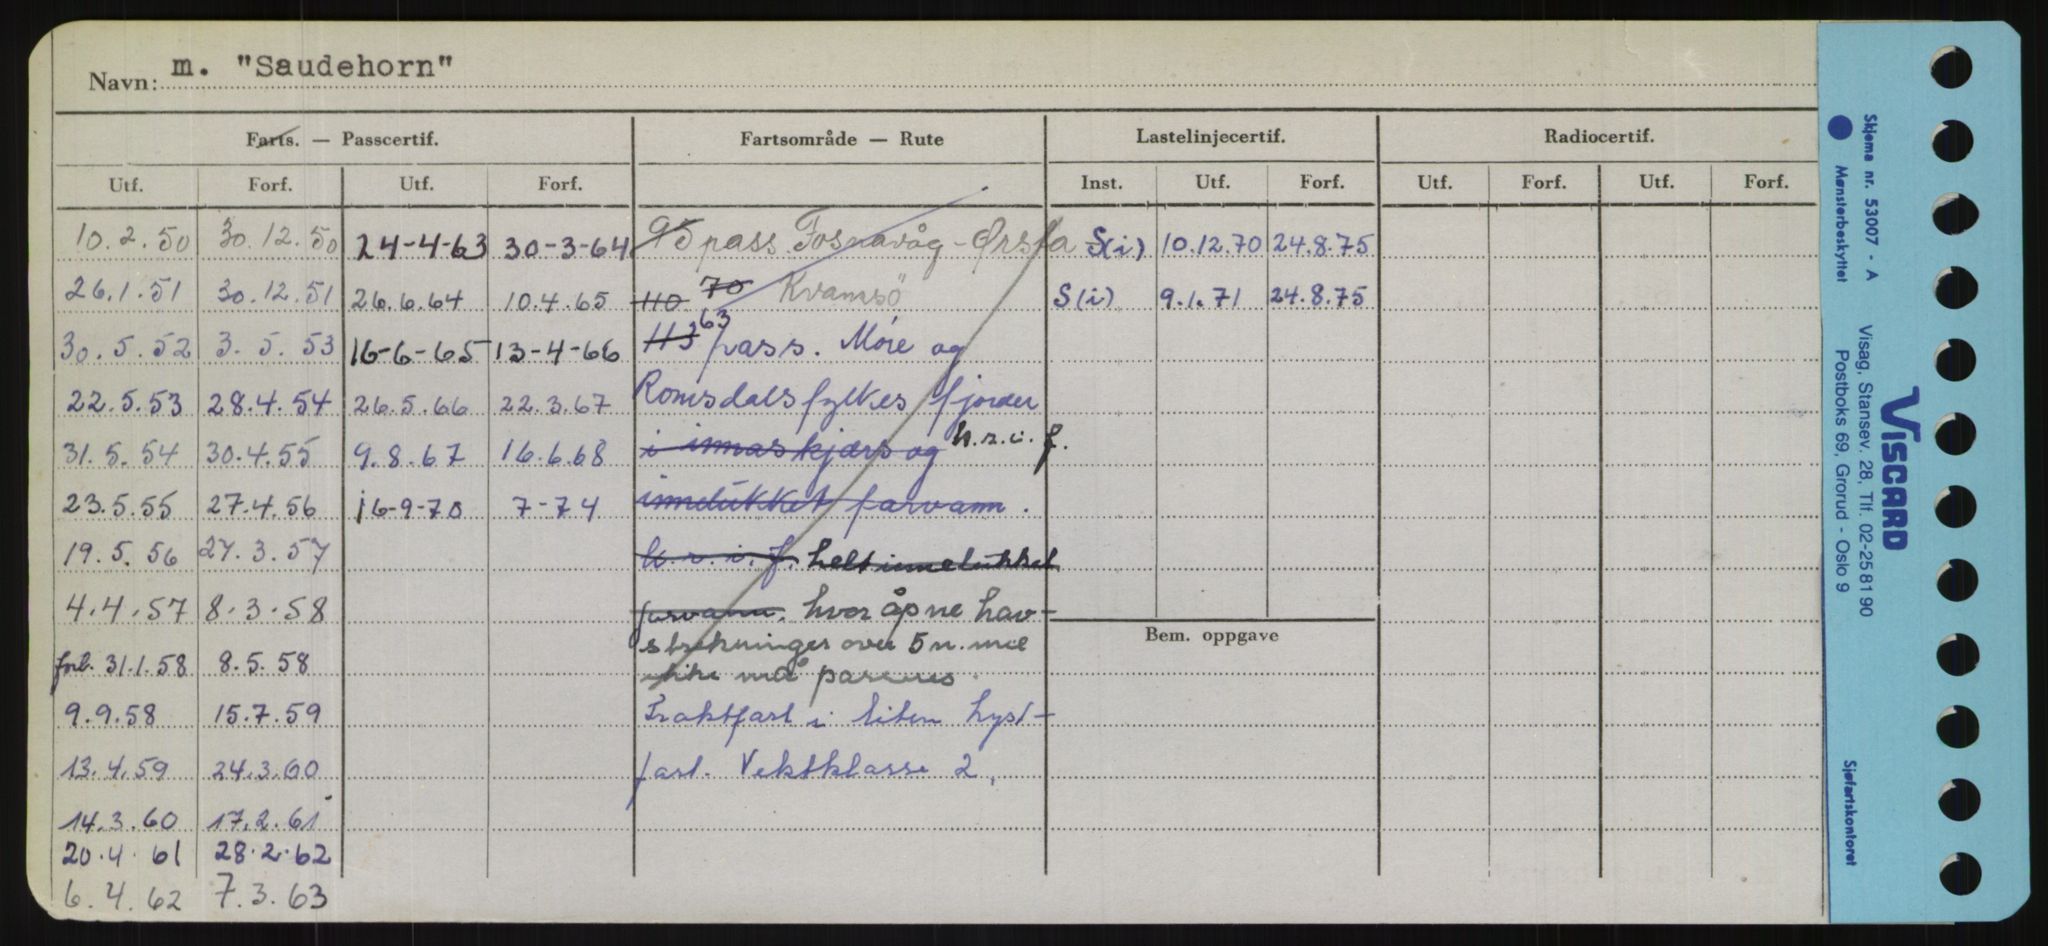 Navn: m. "Saudehorn"
Farts. — Passcertif. Fartsområde — Rute Lastelinjecertif. Radiocertif.
Utf. Forf. Utf. Forf. Inst. Utf. Forf. Utf. Forf. Utf. Forf.
10.2.50 30.12.50 24-4-63 30-3-64 95 pass. Fosnavåg - Ørsta S(i) 10.12.70 24.8.75
26.1.51 30.12.51 26.6.64 10.4.65 110 70 Kvamsö S(i) 9.1.71 24.8.75
30.5.52 3.5.53 16-6-65 13-4-66 113 63 pass. Møre og
22.5.53 28.4.54 26.5.66 22.3.67 Romsdals fylkes fjorder
31.5.54 30.4.55 9.8.67 16.6.68 i innaskjærs og h.r.i.f.
23.5.55 27.4.56 16-9-70 7-74 innelukket farvann.
19.5.56 27.3.57 h.r.i.f. helt innelukket
4.4.57 8.3.58 farvann. hvor åpne hav-
forl. 31.1.58 8.5.58 strekninger over 5 n. mil
ikke må passeres.
9.9.58 15.7.59 Fraktfart i liten kyst-
13.4.59 24.3.60 fart. Vektklasse 2.
14.3.60 17.2.61
20.4.61 28.2.62
6.4.62 7.3.63
Bem. oppgave
Skjema nr. 53007 - A
Mønsterbeskyttet
VISCARD
Visag, Stansev. 28, Tlf. 02-25 81 90
Postboks 69, Grorud - Oslo 9
Sjøfartskontoret